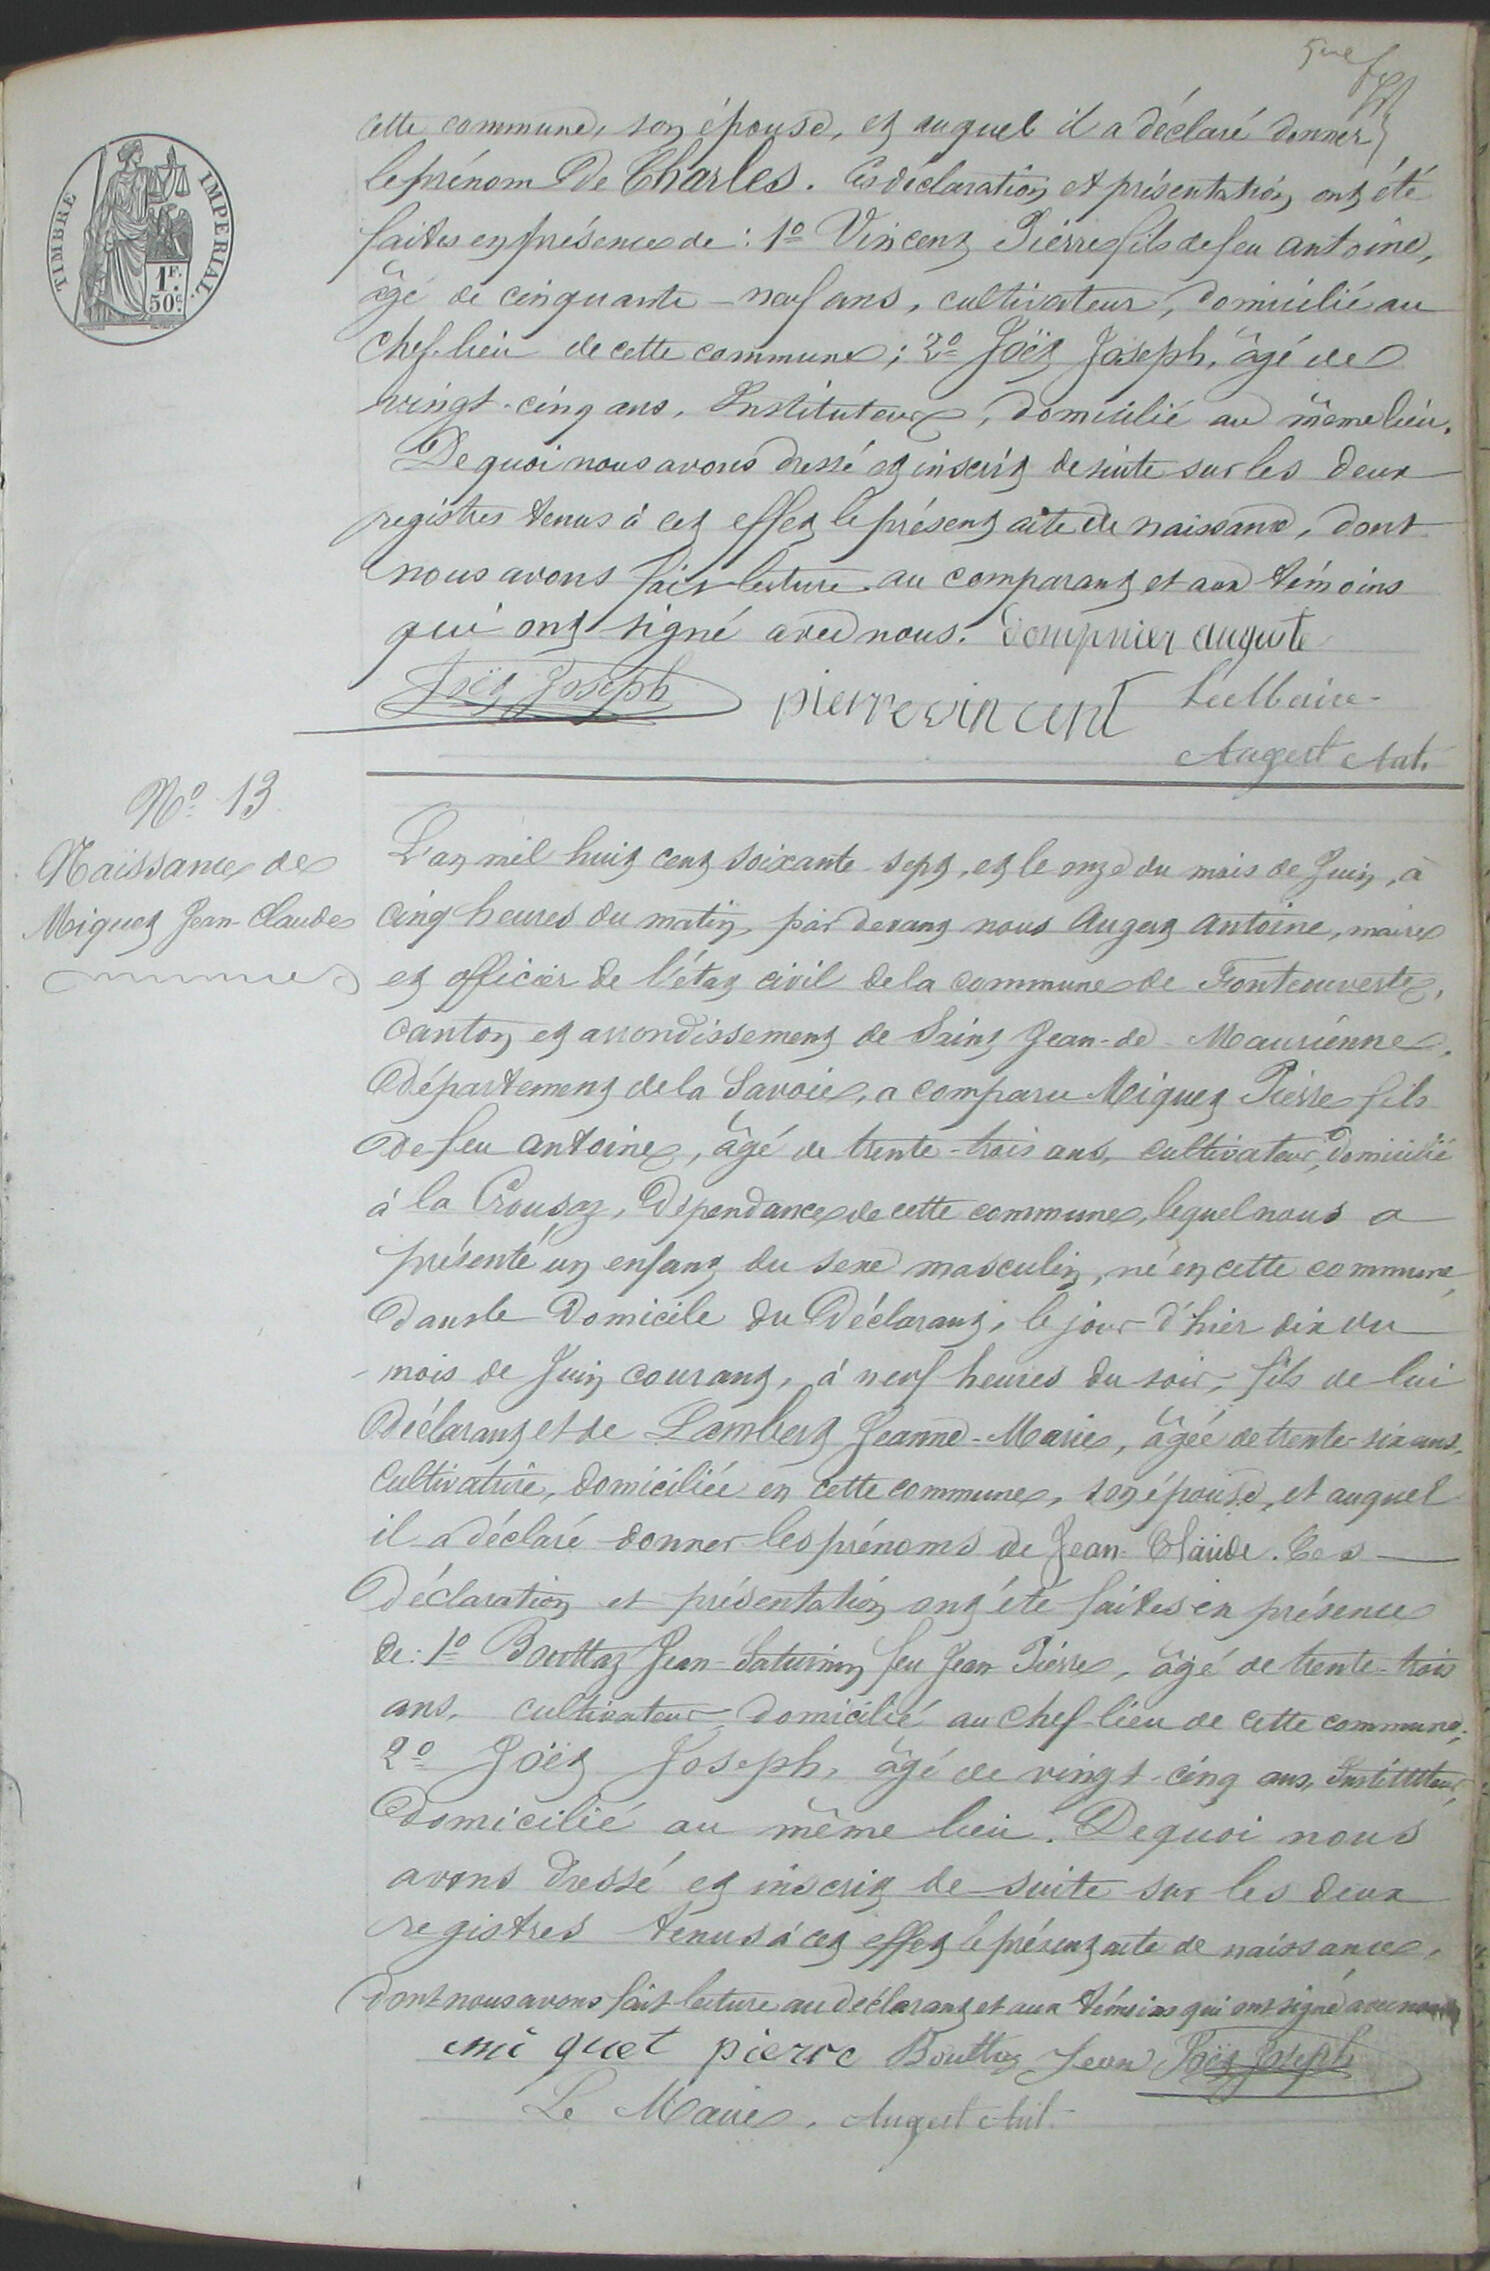 5me
TIMBRE IMPERIAL
1F.
50c.
cette commune, son épouse, et auquel il a déclaré donner
le prénom de Charles. Ces déclaration et présentation ont été
faites en présence de : 1o Vincent Pierre fils de feu antoine,
âgé de cinquante-neuf ans, cultivateur, domicilié au
chef-lieu de cette commune ; 2o Joët Joseph, âgé de
vingt-cinq ans, Instituteur, domicilié au même lieu.
De quoi nous avons dressé et inscrit de suite sur les deux
registres tenus à cet effet le présent acte de naissance, dont
nous avons fait lecture au comparant et aux témoins
qui ont signé avec nous. Dompnier auguste
Joët Joseph pierre vincent Le Maire
Augert Ant.
No 13
Naissance de
Miquet Jean-Claude
L'an mil huit cent soixante-sept, et le onze du mois de Juin, à
cinq heures du matin, par devant nous Augert Antoine, maire
et officier de l'état civil de la commune de Fontcouverte,
canton et arrondissement de Saint Jean-de-Maurienne,
Département de la Savoie, a comparu Miquet Pierre fils
de feu antoine, âgé de trente-trois ans, cultivateur, domicilié
à la Crousaz, Dépendance de cette commune, lequel nous a
présenté un enfant du sexe masculin, né en cette commune,
dans le Domicile du Déclarant, le jour d'hier dix du
mois de Juin courant, à neuf heures du soir, fils de lui
Déclarant et de Lambert Jeanne-Marie, âgée de trente-six ans,
Cultivatrice, domiciliée en cette commune, son épouse, et auquel
il a déclaré donner les prénoms de Jean-Claude. Ces
Déclaration et présentation ont été faites en présence
de : 1o Bouttaz Jean-Saturnin feu Jean Pierre, âgé de trente-trois
ans, cultivateur domicilié au chef-lieu de cette commune ;
2o Joët Joseph, âgé de vingt-cinq ans, Instituteur,
Domicilié au même lieu. De quoi nous
avons dressé et inscrit de suite sur les deux
registres tenus à cet effet le présent acte de naissance,
dont nous avons fait lecture au déclarant et aux témoins qui ont signé avec nous
miquet pierre Bouttaz Jean Joët Joseph
Le Maire, Augert Ant.